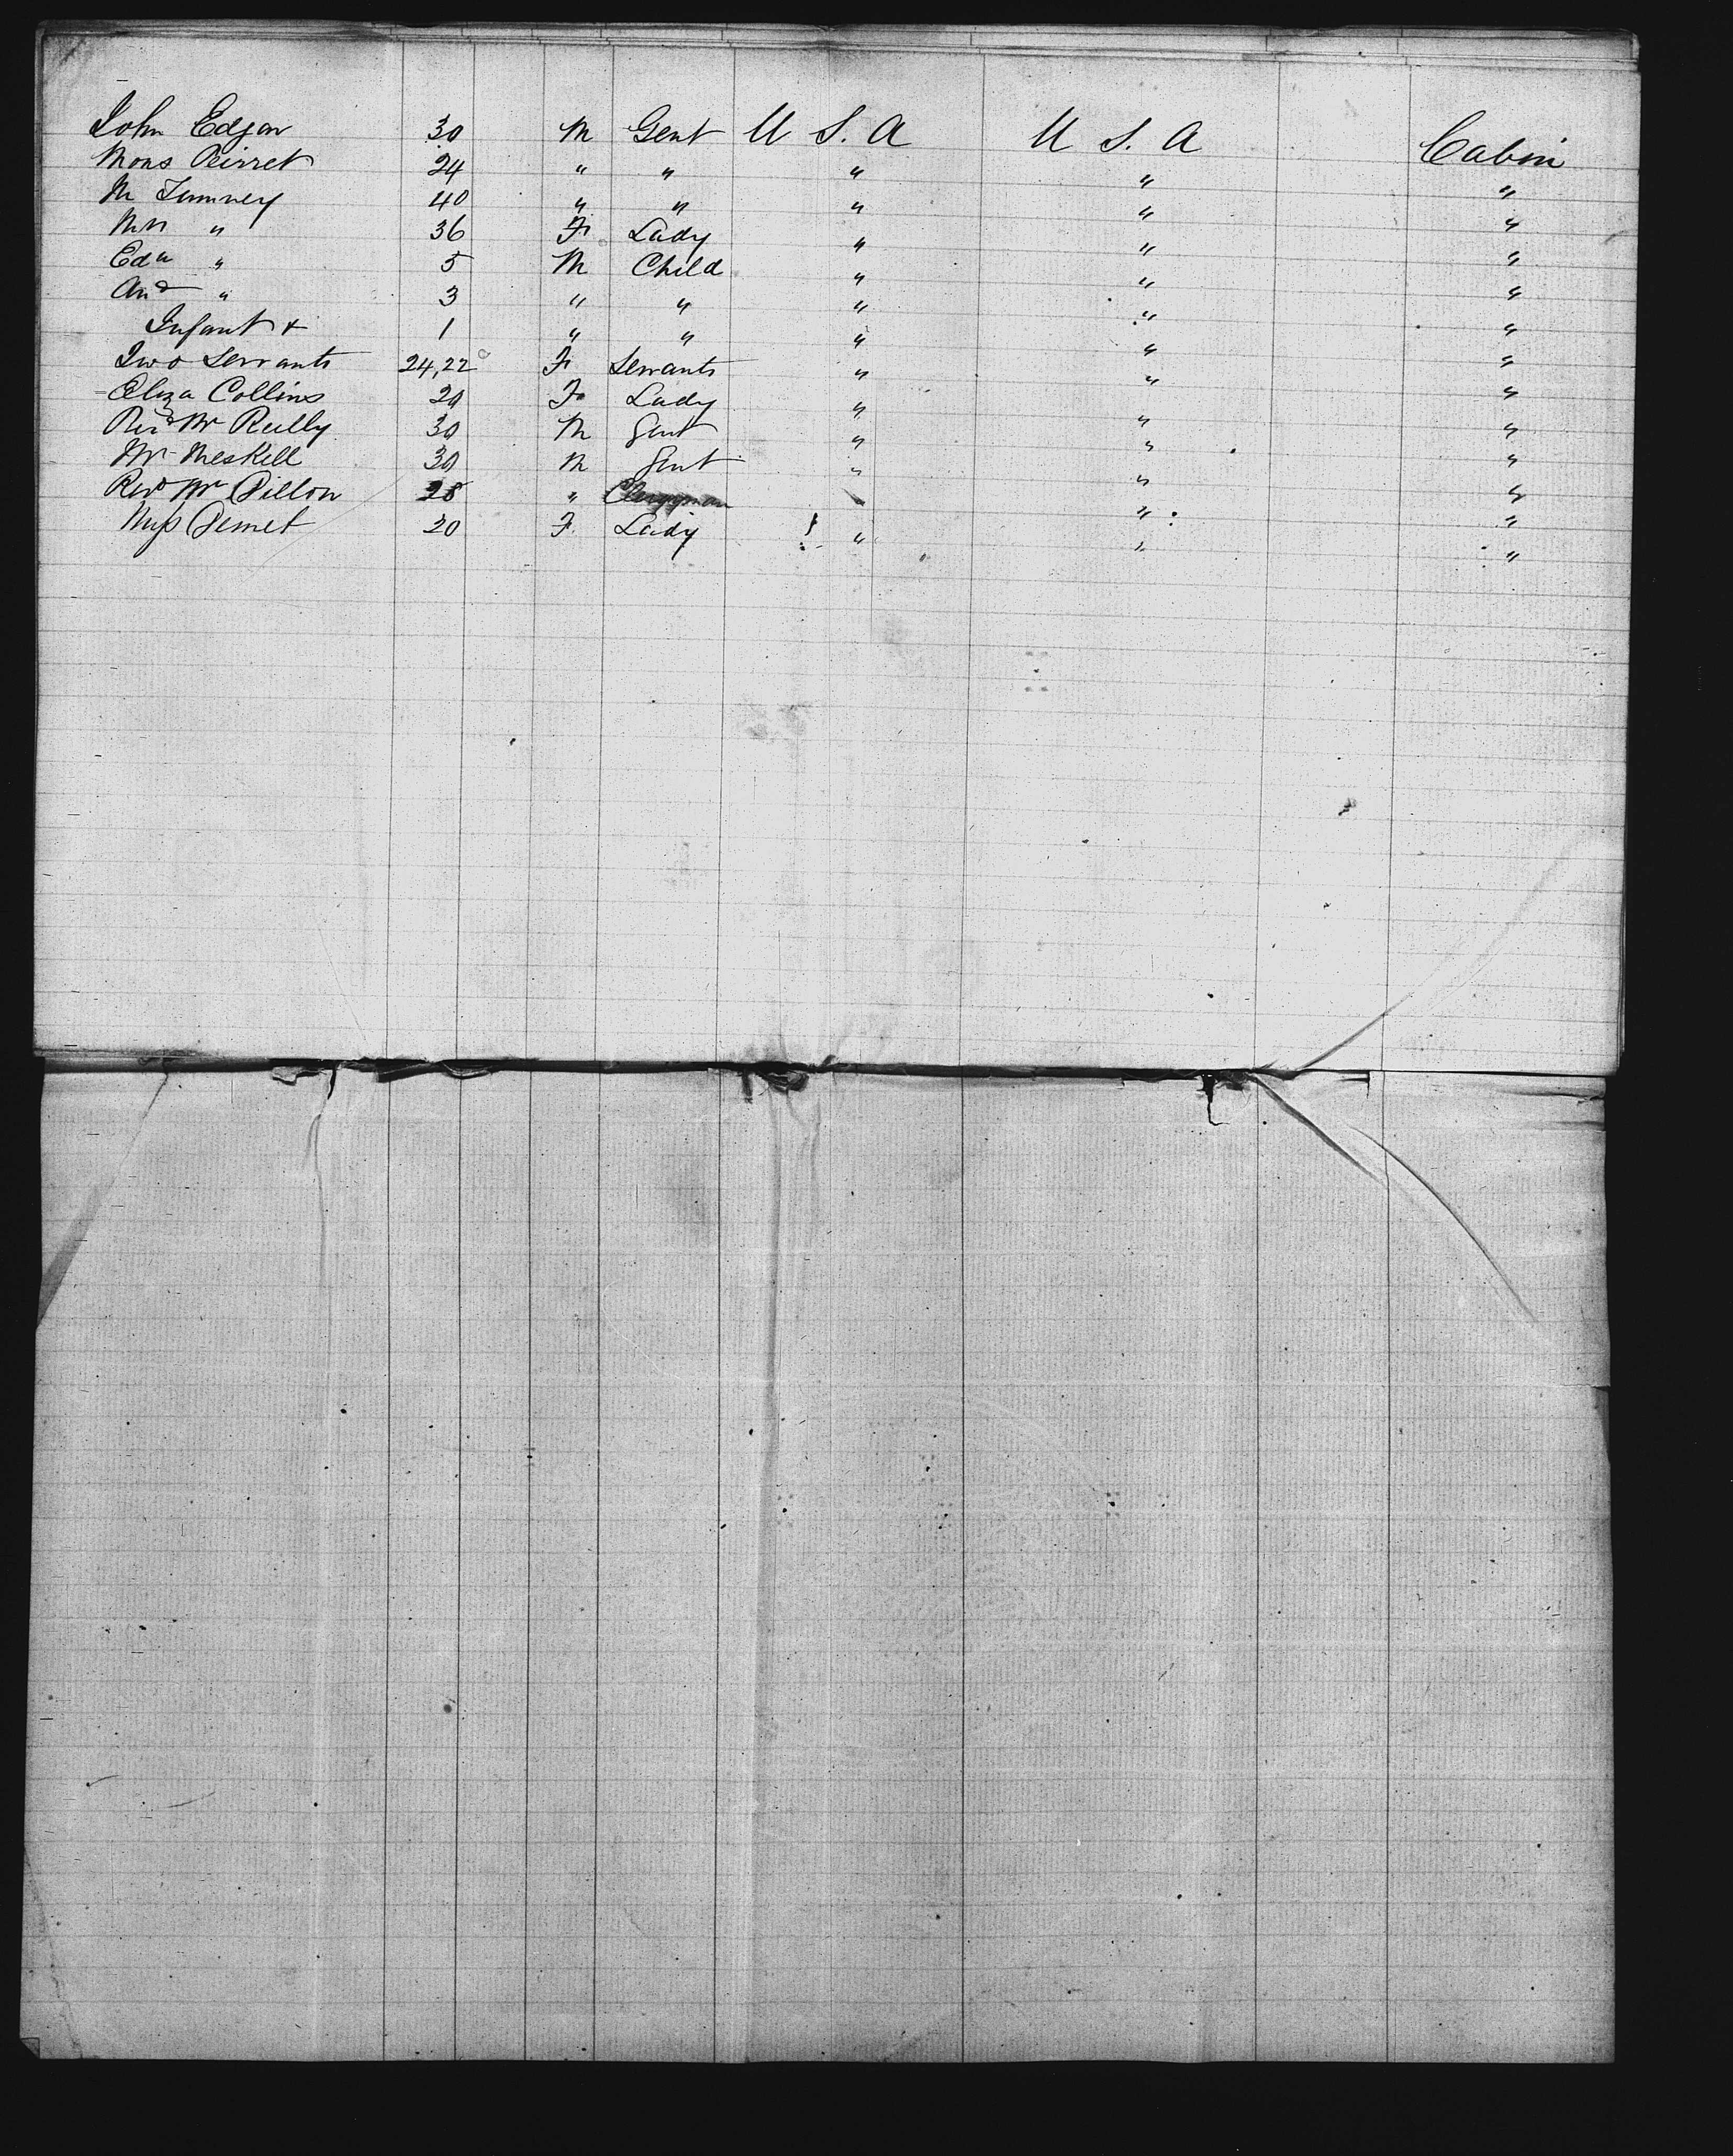 John Edgar 30 M Gent U S. A U S. A Cabin
Mons Peirret 24 " " " " "
Mr Tumney 40 " " " " "
Mrs " 36 F Lady " " "
Edw " 5 M Child " " "
And " 3 " " " " "
Infant & 1 " " " " "
Two Servants 24,22 F Servants " " "
Eliza Collins 20 F Lady " " "
Revd Mr Reilly 30 M Gent " " "
Mr Meskell 30 M Gent " " "
Revd Mr Dillon 28 " Clergyman " " "
Miss Demet 20 F Lady " " "